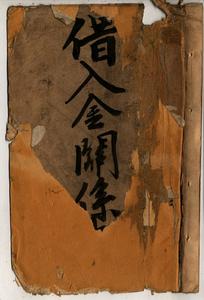 借入金關係